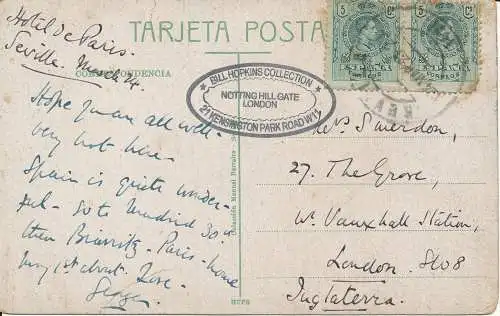 TARJETA POSTA
Hotel de Paris.
Seville. March 4.
CORRESPONDENCIA
Hope you are all well -
very hot here -
Spain is quite wonder-
ful - So to Madrid 30th
then Biarritz - Paris - home
May 1st about. Love.
BILL HOPKINS COLLECTION
NOTTING HILL GATE
LONDON
21 KENSINGTON PARK ROAD W11
5 Cs
5 Cs
Mrs Smerdon,
27. The Grove,
Nr. Vauxhall Station,
London. SW8
Inglaterra.